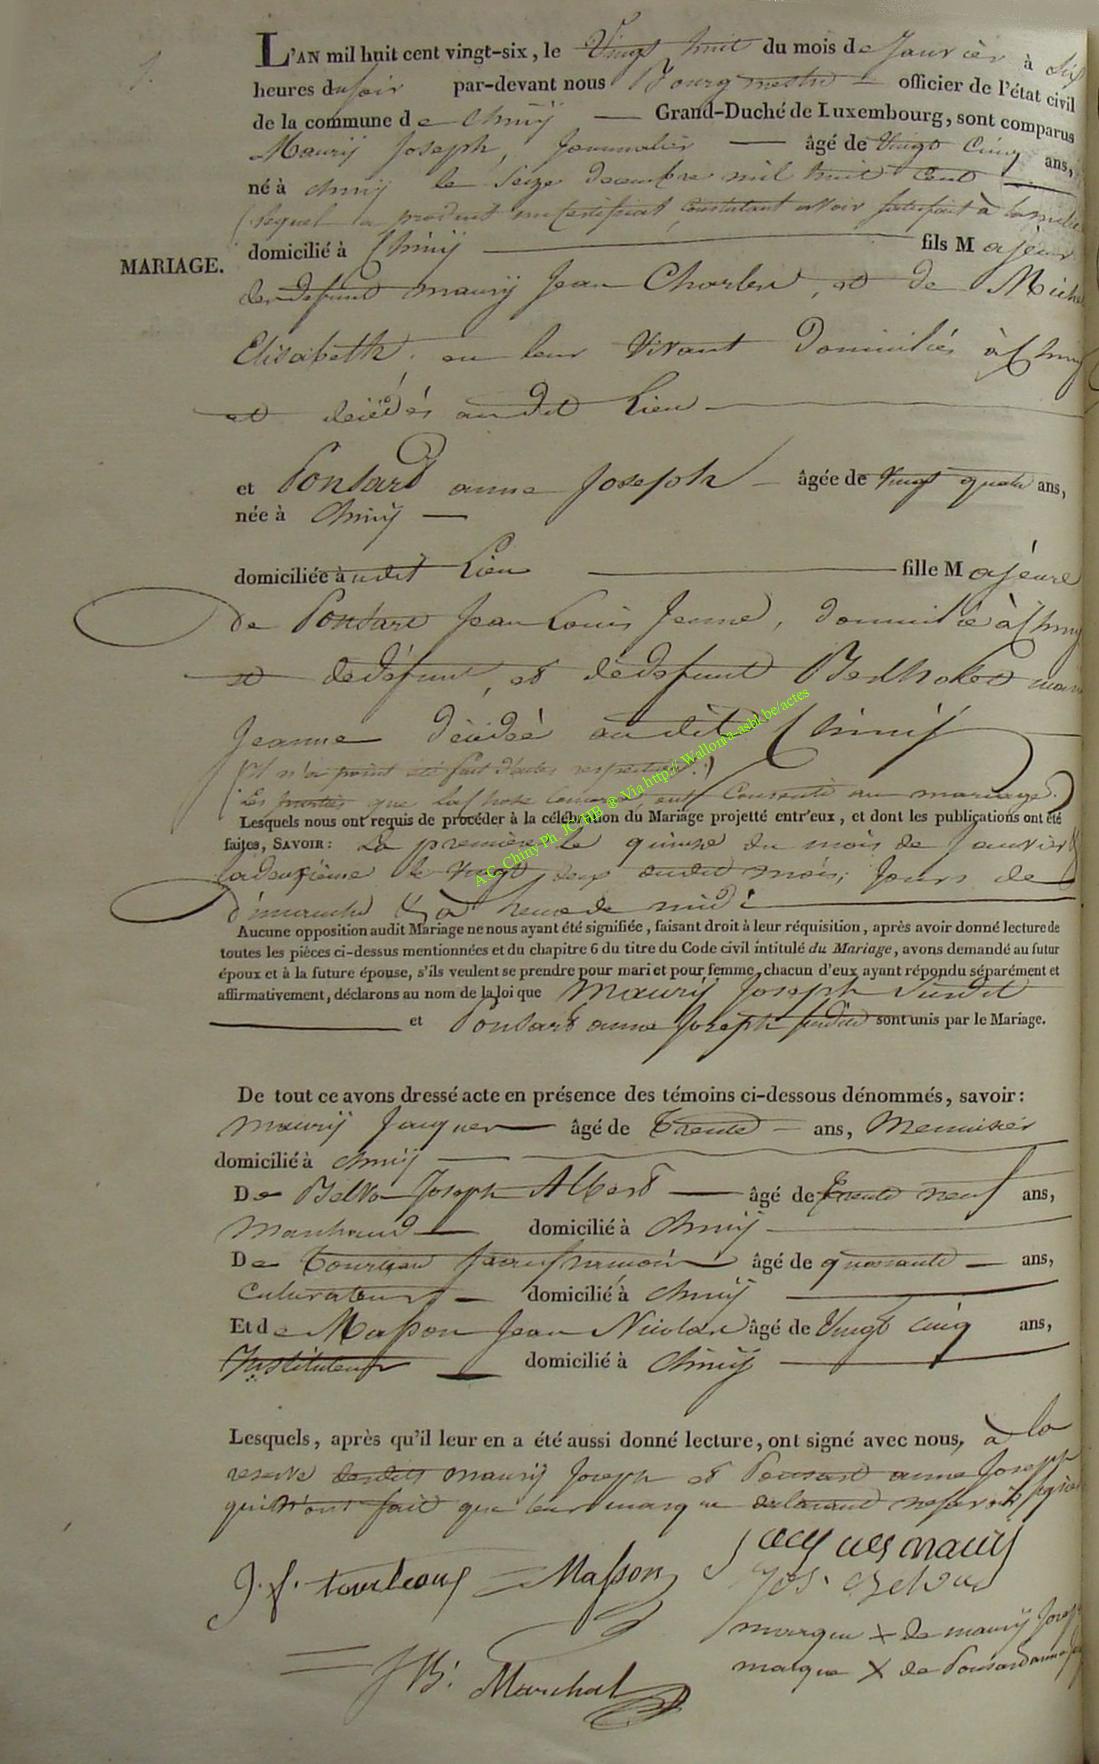 1.
L'AN mil huit cent vingt-six, le Vingt huit du mois de Janvier à six
heures du soir par-devant nous Bourgmestre officier de l'état civil
de la commune de Chiny Grand-Duché de Luxembourg, sont comparus
Maurij Joseph, Journalier âgé de Vingt Cinq ans,
né à Chinij le Seize decembre mil huit Cent
(lequel a produit un Certificat, Constatant avoir satisfait à la milice
domicilié à Chinij fils Majeur
MARIAGE.
de defunt maurij Jean Charles, et de Michel
Elisabeth, en leur Vivant Domiciliés à Chinij
et décédés audit Lieu
et Ponsard anne Joseph âgée de Vingt quatre ans,
née à Chinij
domiciliée audit Lieu fille Majeure
De Ponsard Jean Louis Jenne, domicilié à Chinij
et dedéfunt, et dedefunt Bertholet marie
Jeanne décédée audit Chinij
(Il n'a point été fait d'actes respectueux.)
(Les parties que la chose concerne, ont Consenti au mariage.)
Lesquels nous ont requis de procéder à la célébration du Mariage projetté entr'eux, et dont les publications ont été
faites, SAVOIR: La première le quinze du mois de Janvier &
la deuxième le Vingt deux audit mois, Jours de
dimanche & à heure de midi
Aucune opposition audit Mariage ne nous ayant été signifiée, faisant droit à leur réquisition, après avoir donné lecture de
toutes les pièces ci-dessus mentionnées et du chapitre 6 du titre du Code civil intitulé du Mariage, avons demandé au futur
époux et à la future épouse, s'ils veulent se prendre pour mari et pour femme, chacun d'eux ayant répondu séparément et
affirmativement, déclarons au nom de la loi que Maurij Joseph susdit
et Ponsard anne Joseph susdite sont unis par le Mariage.
De tout ce avons dressé acte en présence des témoins ci-dessous dénommés, savoir:
Maurij Jacques âgé de Trente ans, Menuisier
domicilié à Chinij
De Belva Joseph Albert âgé de Trente neuf ans,
Marchand domicilié à Chinij
De Tourteau âgé de quarante ans,
Cultivateur domicilié à Chinij
Et de Masson Jean Nicolas âgé de Vingt cinq ans,
Instituteur domicilié à Chinij
Lesquels, après qu'il leur en a été aussi donné lecture, ont signé avec nous, à la
reserve desdits Maurij Joseph et Ponsard anne Joseph
qui n'ont fait que leur marque declarant ne savoir signer
J. f. tourteau Masson Jacques Maurij
Jos. Belva
marque X de maurij Joseph
marque X de Ponsard anne Jos
JB. Marchal
A.C. Chiny Ph. JC HB @ Via http:// Wallonia-asbl.be/actes